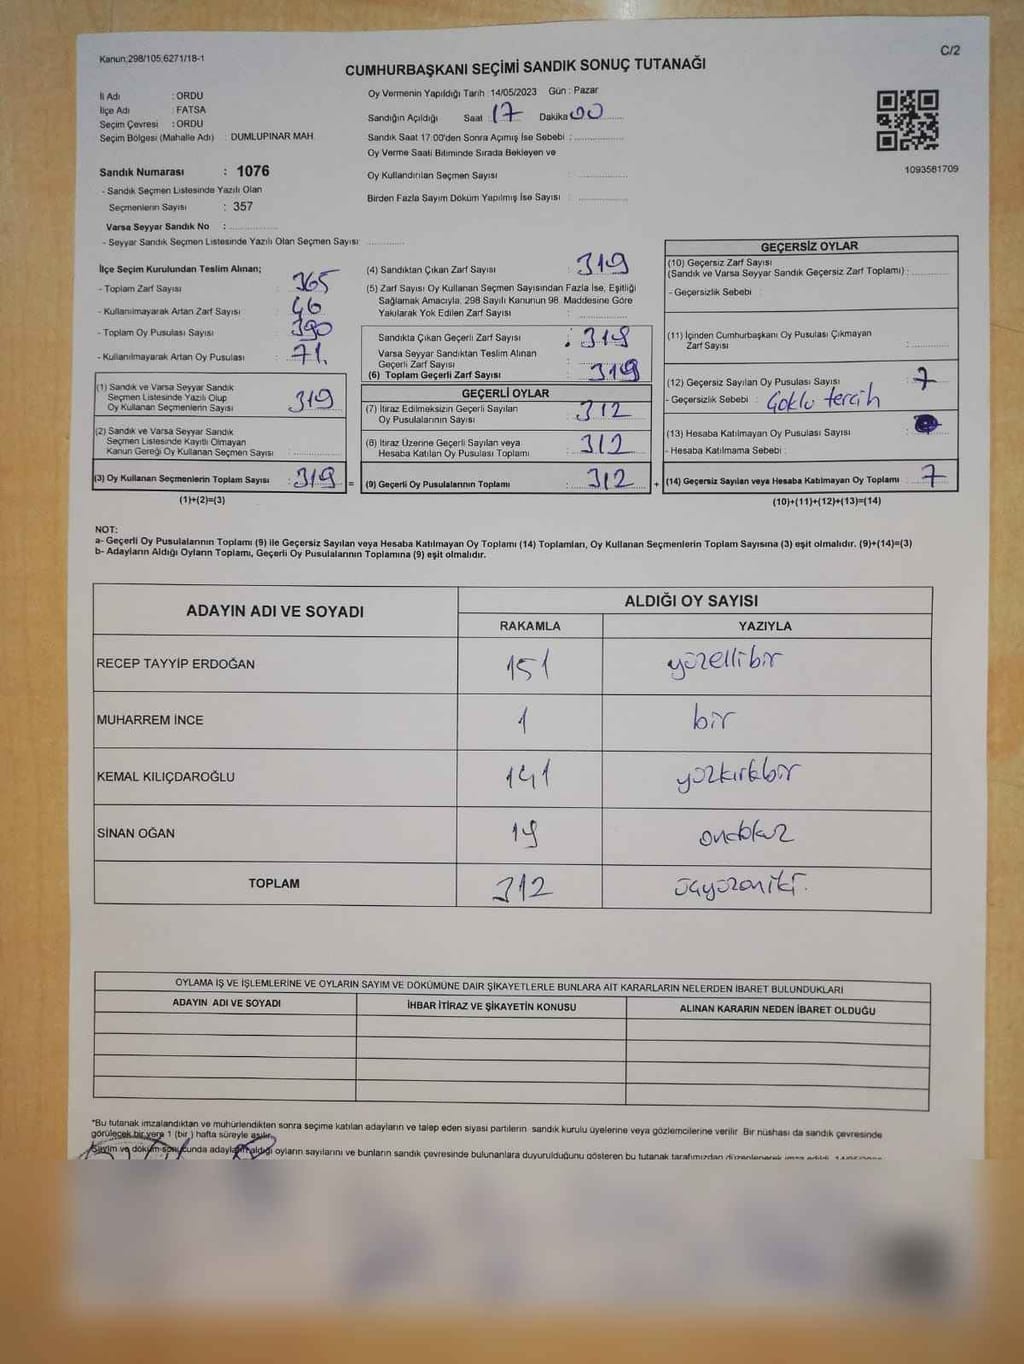 Kanun:298/105,6271/18-1
C/2
CUMHURBAŞKANI SEÇİMİ SANDIK SONUÇ TUTANAĞI
İl Adı : ORDU
İlçe Adı : FATSA
Seçim Çevresi : ORDU
Seçim Bölgesi (Mahalle Adı) : DUMLUPINAR MAH.
Sandık Numarası : 1076
- Sandık Seçmen Listesinde Yazılı Olan
Seçmenlerin Sayısı : 357
Varsa Seyyar Sandık No :
- Seyyar Sandık Seçmen Listesinde Yazılı Olan Seçmen Sayısı:
Oy Vermenin Yapıldığı Tarih : 14/05/2023 Gün : Pazar
Sandığın Açıldığı Saat : 17 Dakika 00
Sandık Saat 17:00'den Sonra Açımış İse Sebebi :
Oy Verme Saati Bitiminde Sırada Bekleyen ve
Oy Kullandırılan Seçmen Sayısı :
Birden Fazla Sayım Döküm Yapılmış İse Sayısı :
1093581709
İlçe Seçim Kurulundan Teslim Alınan;
- Toplam Zarf Sayısı : 365
- Kullanılmayarak Artan Zarf Sayısı : 46
- Toplam Oy Pusulası Sayısı : 390
- Kullanılmayarak Artan Oy Pusulası : 71.
(1) Sandık ve Varsa Seyyar Sandık
Seçmen Listesinde Yazılı Olup
Oy Kullanan Seçmenlerin Sayısı : 319
(2) Sandık ve Varsa Seyyar Sandık
Seçmen Listesinde Kayıtlı Olmayan
Kanun Gereği Oy Kullanan Seçmen Sayısı :
(3) Oy Kullanan Seçmenlerin Toplam Sayısı : 319 =
(1)+(2)=(3)
(4) Sandıktan Çıkan Zarf Sayısı : 319
(5) Zarf Sayısı Oy Kullanan Seçmen Sayısından Fazla İse, Eşitliği
Sağlamak Amacıyla, 298 Sayılı Kanunun 98. Maddesine Göre
Yakılarak Yok Edilen Zarf Sayısı :
Sandıkta Çıkan Geçerli Zarf Sayısı : 319
Varsa Seyyar Sandıktan Teslim Alınan
Geçerli Zarf Sayısı :
(6) Toplam Geçerli Zarf Sayısı : 319
GEÇERLİ OYLAR
(7) İtiraz Edilmeksizin Geçerli Sayılan
Oy Pusulalarının Sayısı : 312
(8) İtiraz Üzerine Geçerli Sayılan veya
Hesaba Katılan Oy Pusulası Toplamı : 312
(9) Geçerli Oy Pusulalarının Toplamı : 312 +
GEÇERSİZ OYLAR
(10) Geçersiz Zarf Sayısı
(Sandık ve Varsa Seyyar Sandık Geçersiz Zarf Toplamı) :
- Geçersizlik Sebebi :
(11) İçinden Cumhurbaşkanı Oy Pusulası Çıkmayan
Zarf Sayısı :
(12) Geçersiz Sayılan Oy Pusulası Sayısı : 7
- Geçersizlik Sebebi : Çoklu tercih
(13) Hesaba Katılmayan Oy Pusulası Sayısı :
- Hesaba Katılmama Sebebi :
(14) Geçersiz Sayılan veya Hesaba Katılmayan Oy Toplamı : 7
(10)+(11)+(12)+(13)=(14)
NOT:
a- Geçerli Oy Pusulalarının Toplamı (9) ile Geçersiz Sayılan veya Hesaba Katılmayan Oy Toplamı (14) Toplamları, Oy Kullanan Seçmenlerin Toplam Sayısına (3) eşit olmalıdır. (9)+(14)=(3)
b- Adayların Aldığı Oyların Toplamı, Geçerli Oy Pusulalarının Toplamına (9) eşit olmalıdır.
ADAYIN ADI VE SOYADI
ALDIĞI OY SAYISI
RAKAMLA YAZIYLA
RECEP TAYYİP ERDOĞAN 151 yüzellibir
MUHARREM İNCE 1 bir
KEMAL KILIÇDAROĞLU 141 yüzkırkbir
SİNAN OĞAN 19 ondokuz
TOPLAM 312 üçyüzoniki.
OYLAMA İŞ VE İŞLEMLERİNE VE OYLARIN SAYIM VE DÖKÜMÜNE DAİR ŞİKAYETLERLE BUNLARA AİT KARARLARIN NELERDEN İBARET BULUNDUKLARI
ADAYIN ADI VE SOYADI İHBAR İTİRAZ VE ŞİKAYETİN KONUSU ALINAN KARARIN NEDEN İBARET OLDUĞU
*Bu tutanak imzalandıktan ve mühürlendikten sonra seçime katılan adayların ve talep eden siyasi partilerin sandık kurulu üyelerine veya gözlemcilerine verilir. Bir nüshası da sandık çevresinde
görülecek bir yere 1 (bir) hafta süreyle asılır.
Sayım ve döküm sonucunda adayların aldığı oyların sayılarını ve bunların sandık çevresinde bulunanlara duyurulduğunu gösteren bu tutanak tarafımızdan düzenlenerek imza edildi.